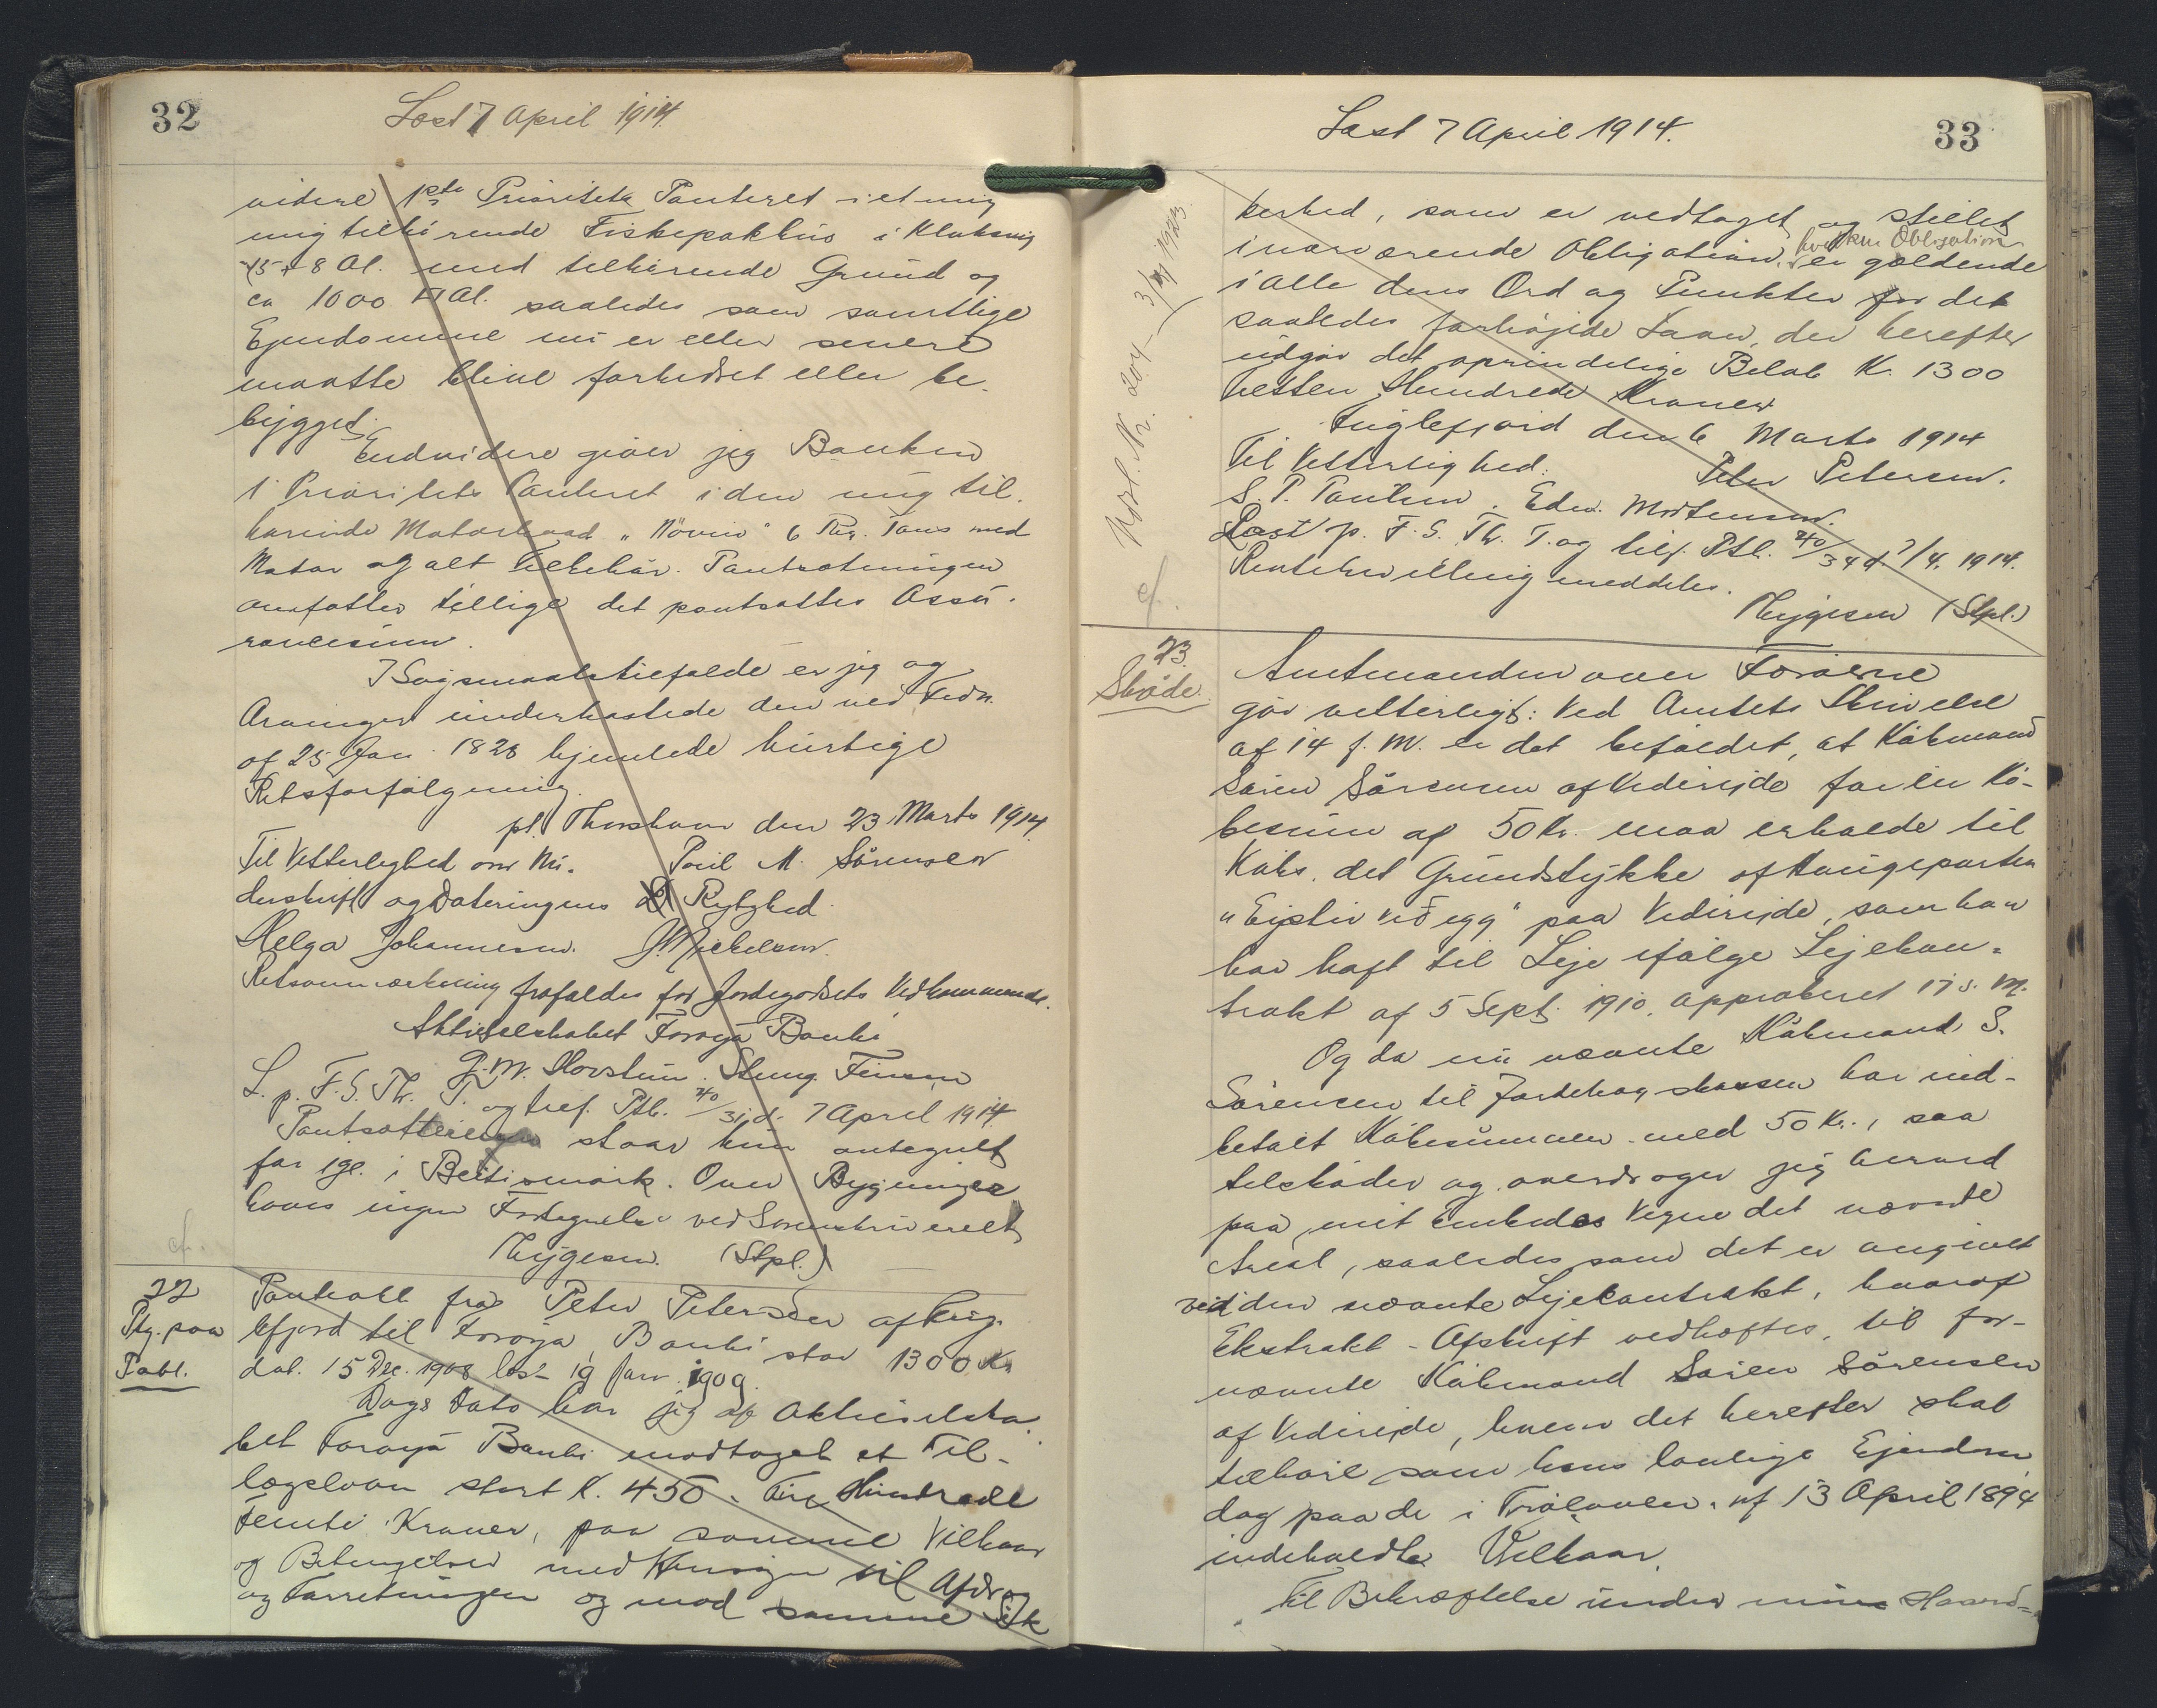 32
Læst 7 April 1914.
videre 1ste Prioritets Panteret i et mig
mig tilhørende Fiskepakhus i Klaksvig
15 + 8 Al. med tilhørende Grund og
ca 1000 □ Al. saaledes som samtlige
Ejendomme nu er eller senere
maatte blive forbedret eller be-
bygget.
Endvidere giver jeg Banken
1 Prioritets Panteret i den mig til-
hørende Motorbaad "Növin" 6 Reg. Tons med
Motor og alt Tilbehør. Pantsætningen
omfatter tillige det pantsattes Assu-
rancesum.
I Søgsmaalstilfælde er jeg og
Arvinger underkastede den ved Frdn.
af 25 Jan. 1828 hjemlede hurtige
Retsforfølgning.
pt. Thorshavn den 23 Marts 1914.
Til Vitterlighed om Un- Poul M. Sörensen
derskrift og Dateringens Rigtighed.
Helga Johannesen. J. Mickelsen.
Retsanmærkning frafaldes for Jordegodsets Vedkommende.
Aktieselskabet Föroya Banki
J. M. Hovstein. Steing. Finsen
L. p. F. S. Th. T. og tref. Ptb. 40/31 d. 7 April 1914
Pantsætteren staar kun antegnet
for 1 gl. i Beitismörk. Over Bygninger
haves ingen Fortegnelse ved Sorenskriveriet
Thygesen. (Stpl.)
cf.
22
Ptg. paa
Pobl.
Panteobl. fra Peter Petersen af Fug-
lefjord til Föroya Banki stor 1300 Kr
dat. 15 Dec. 1908 læst 19 Janr. 1909.
Dags Dato har jeg af Aktieselska-
bet Föroya Banki modtaget et Til-
lægslaan stort K. 450 - Fire Hundrede
Femti Kroner, paa samme Vilkaar
og Betingelser med Hensyn til Afdrag
og Forretningen og mod samme Sik
Læst 7 April 1914.
33
kerhed, som er vedtaget og stillet
i nærværende Obligation, hvilken Obligation er gældende
i alle dens Ord og Punkter for det
saaledes forhøjede Laan, der herefter
udgør det oprindelige Beløb K. 1300
tretten Hundrede Kroner
Fuglefjord den 6 Marts 1914
Til Vitterlighed: Peter Petersen.
S. P. Poulsen. Edw. Mortensen.
Læst p. F. S. Th. T. og tilf. Ptb. 40/34 d. 7/4. 1914.
Rentebevilling meddeles.
Thygesen (Stpl.)
cf.
23.
Skøde.
Amtmanden over Færøerne
gør vitterligt: Ved Amtets Skrivelse
af 14 f. M. er det bifaldet, at Købmand
Sören Sörensen af Viderejde for en Kö-
besum af 50 Kr. maa erholde til
Købs. det Grundstykke af Haugeparten
"Eystir við egg" paa Viderejde, som han
har haft til Leje ifølge Lejekon-
trakt af 5 Sept. 1910. approberet 17 s. M.
Og da nu nævnte Købmand S.
Sörensen til Jordebogskassen har ind-
betalt Købesummen med 50 Kr., saa
tilskøder og overdrager jeg herved
paa mit Embedes Vegne det nævnte
Areal, saaledes som det er angivet
ved den nævnte Lejekontrakt, hvoraf
Ekstrakt-Afskrift vedhæftes, til for-
nævnte Købmand Sören Sörensen
af Viderejde, hvem det herefter skal
tilhøre som hans lovlige Ejendom,
dog paa de i Træloven af 13 April 1894
indeholdte Vilkaar.
Til Bekræftelse under min Haand-